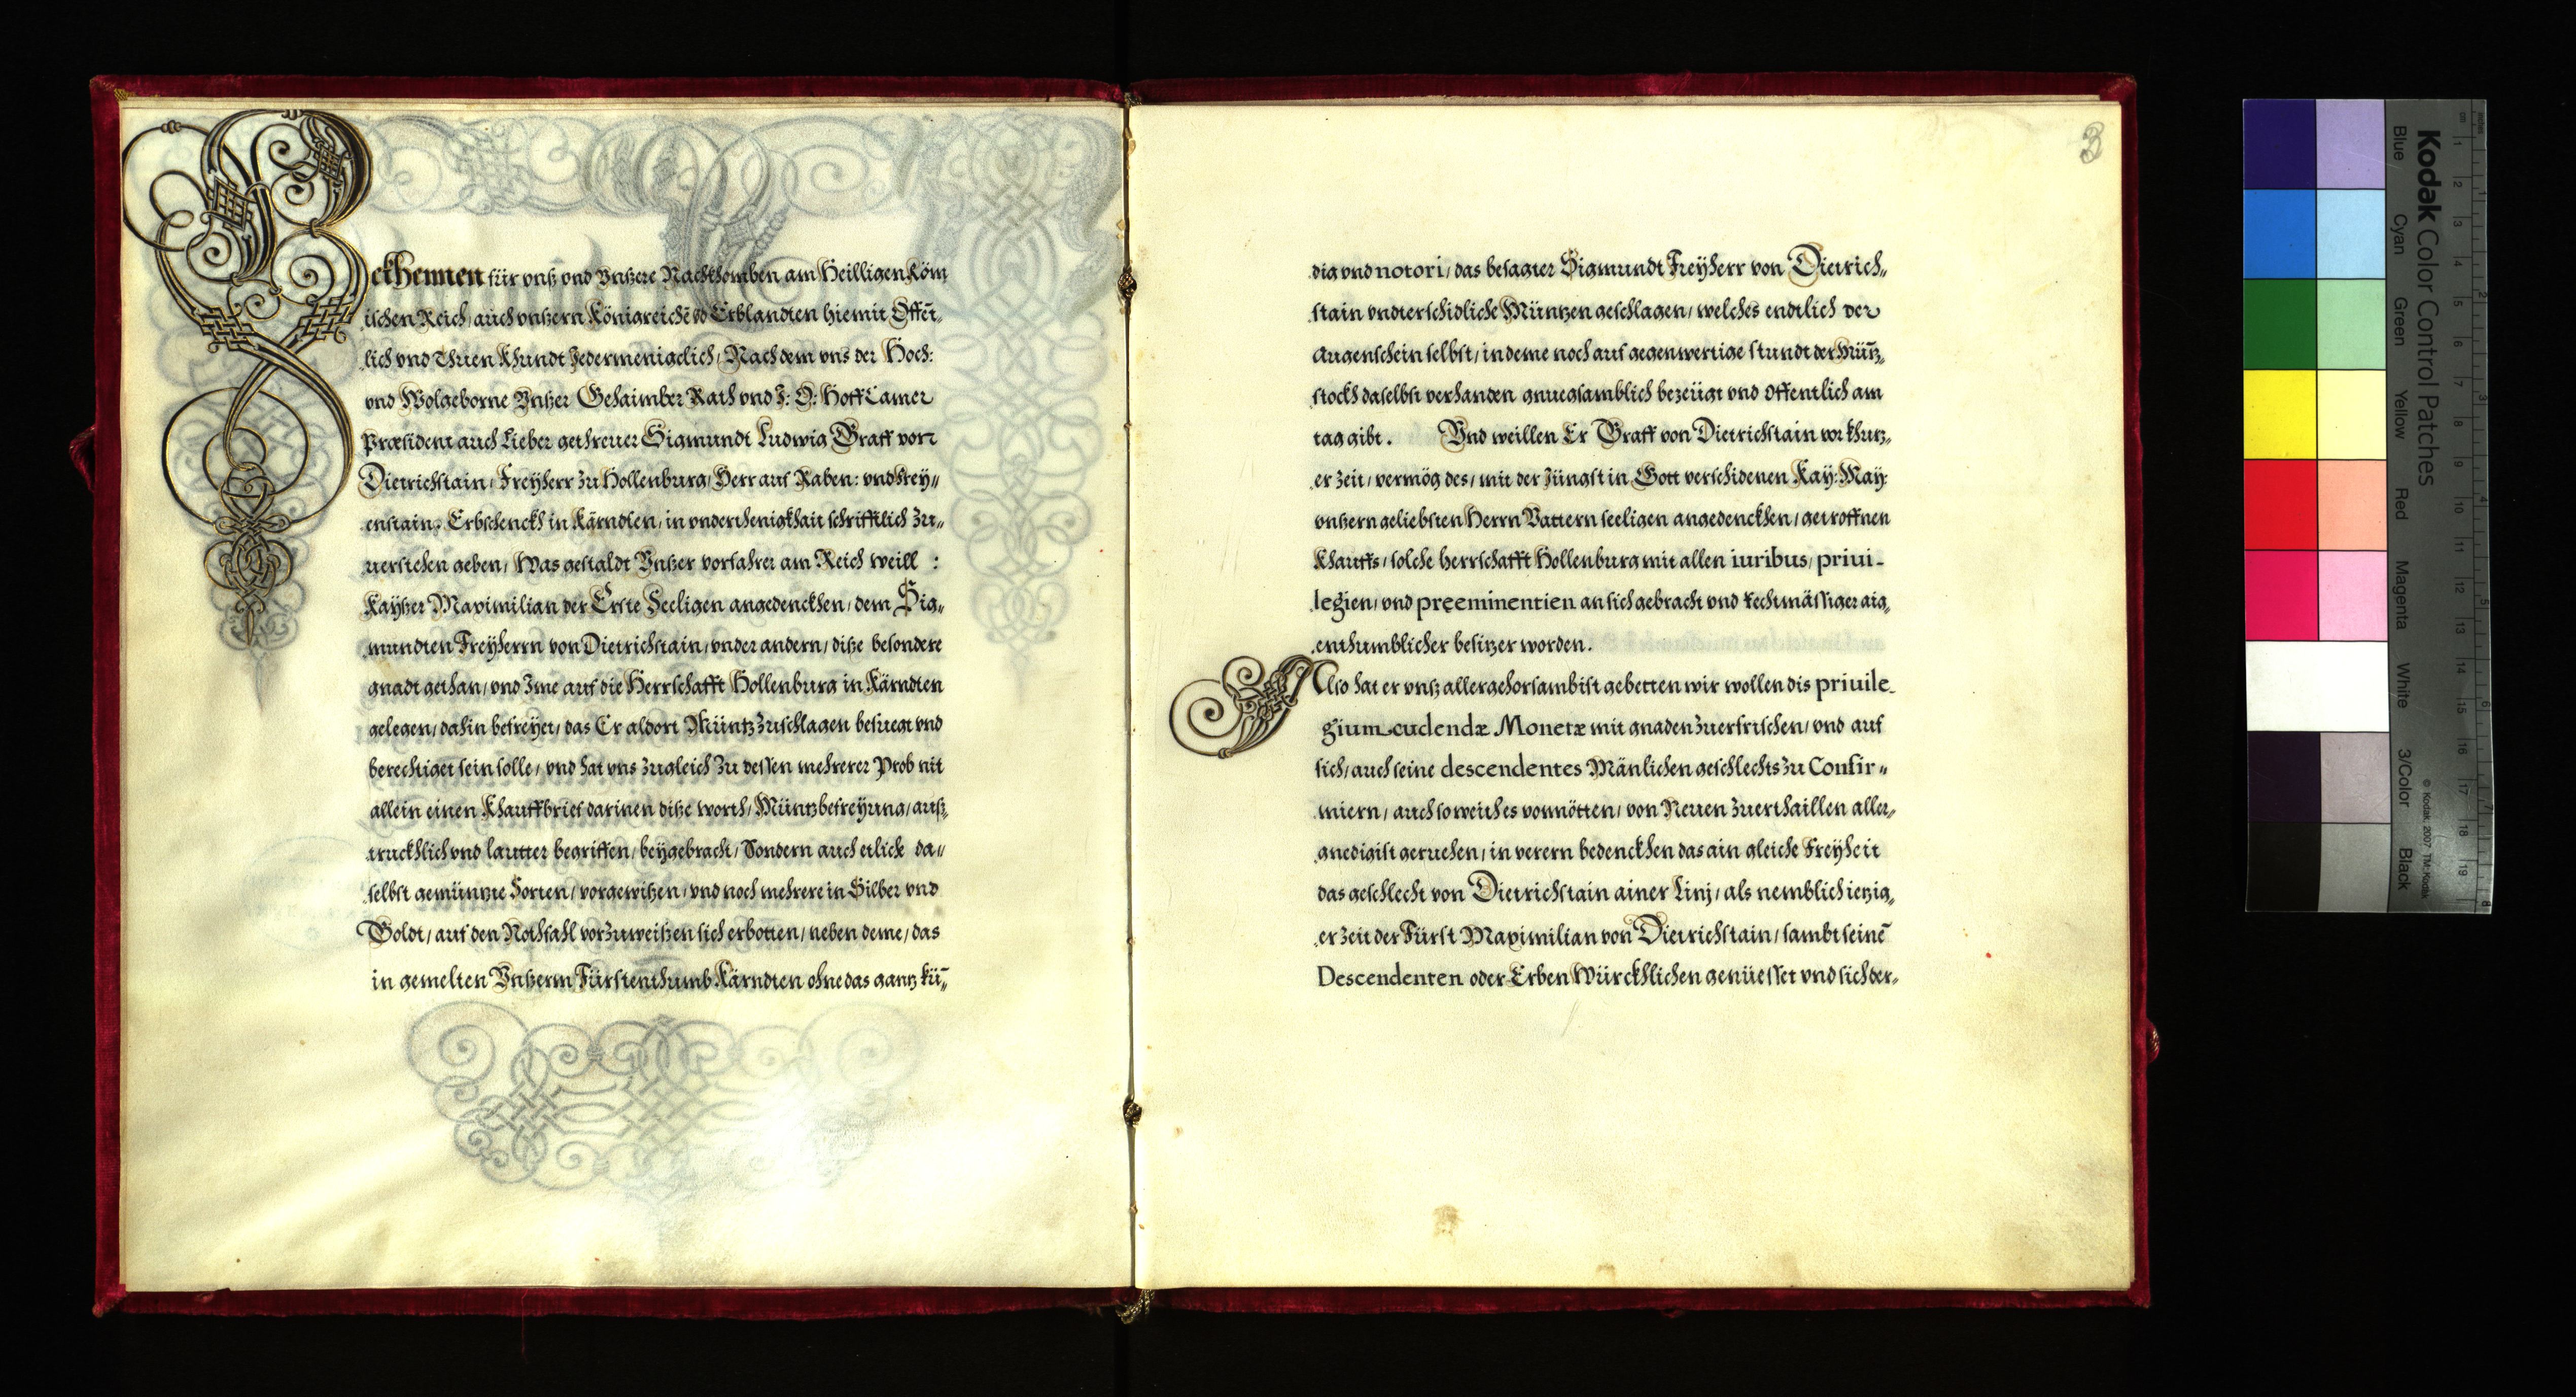 Beckhennen für vnß vnd Vnßere Nachkhomben am Heilligen Röm
ischen Reich, auch vnßern Königreichē vd Erblandten hiemit Offēt„
lich vnd Thuen Khundt Jedermenigclich, Nach dem vns der Hoch:
vnd Wolgeborne Vnßer Gehaimber Rath vnd I: O: Hoff Camer
Præsident auch Lieber getreuer Sigmundt Ludwig Graff von
Dietrichstain, Freyherr zu Hollenburg, Herr auf Raben: vnd Frey„
enstain, Erbschenckh in Kärndten, in vnderthenigkhait schrifftlich zu„
uerstehen geben, Was gestaldt Vnßer vorfahrer am Reich weill :
Kayßer Maximilian der Erste Seeligen angedenckhen, dem Sig„
mundten Freyherrn von Dietrichstain, vnder andern, diße besondere
gnadt gethan, vnd Ime auf die Herrschafft Hollenburg in Kärndten
gelegen, dahin befreyet, das Er aldort Müntz zuschlagen befuegt vnd
berechtiget sein solle, vnd hat vns zugleich zu dessen mehrerer Prob nit
allein einen Khauffbrief darinen diße worth, Müntzbefreyung, auß„
truckhlich vnd lautter begriffen, beygebracht, Sondern auch etliche da„
selbst gemüntzte Sorten, vorgewißen, vnd noch mehrere in Silber vnd
Goldt, auf den Nothfahl vorzuweißen sich erbotten, neben deme, das
in gemelten Vnßerm Fürstenthumb Kärndten ohne das gantz kǖ„
3
dig vnd notori, das besagter Sigmundt Freyherr von Dietrich„
stain vndterschidliche Müntzen geschlagen, welches endtlich der
Augenschein selbst, in deme noch auf gegenwertige stundt der Mün̄tz„
stockh daselbst verhanden gnuegsamblich bezeügt vnd offentlich am
tag gibt. Vnd weillen Er Graff von Dietrichstain vor khurtz„
er zeit, vermög des, mit der Jüngst in Gott verschidenen Kay: May:
vnßern geliebsten Herrn Vattern seeligen angedenckhen, getroffnen
Khauffs, solche herrschafft Hollenburg mit allen iuribus, priui-
legien, vnd preeminentien an sich gebracht vnd rechtmässiger aig„
enthumblicher besitzer worden.
Also hat er vnß allergehorsambist gebetten wir wollen dis priuile-
gium cudendæ Monetæ mit gnaden zuerfrischen, vnd auf
sich, auch seine descendentes Mänlichen geschlechts zu Confir„
miern, auch so weith es vonnötten, von Neuen zuerthaillen aller„
gnedigist geruehen, in verern bedenckhen das ain gleiche Freyheit
das geschlecht von Dietrichstain ainer Linj, als nemblich ietzig„
er zeit der Fürst Maximilian von Dietrichstain, sambt seinē
Descendenten oder Erben Würckhlichen genüesset vnd sich der„
Kodak Color Control Patches
Blue
Cyan
Green
Yellow
Red
Magenta
White
3/Color
Black
© Kodak, 2007 TM: Kodak